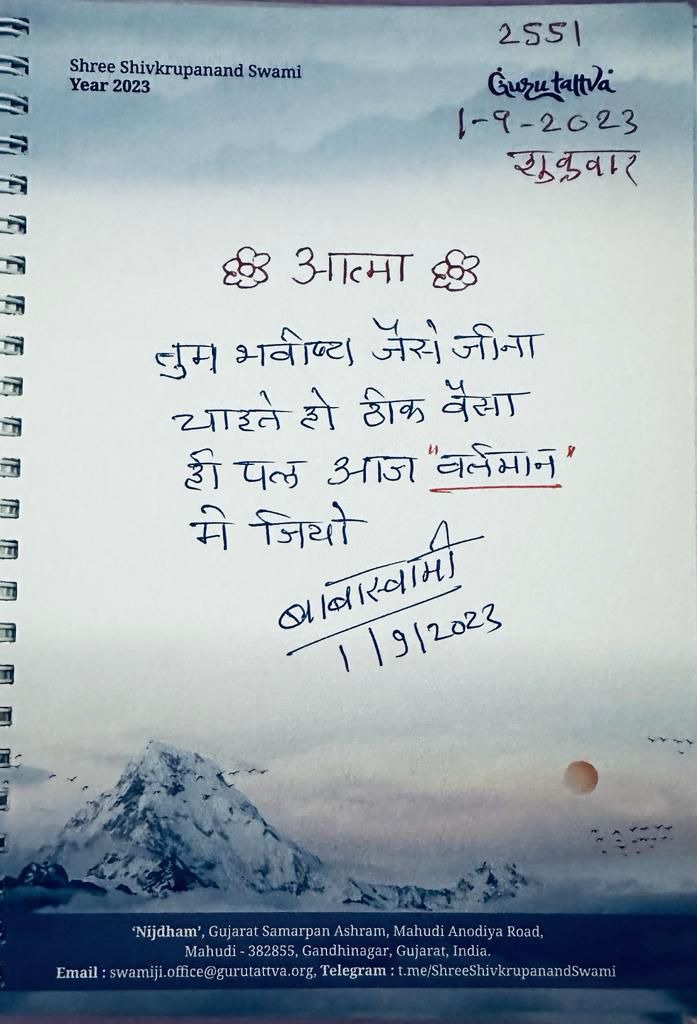 2551
Shree Shivkrupanand Swami
Year 2023
Gurutattva
1-9-2023
शुक्रवार
आत्मा
तुम भवीष्य जैसे जीना
चाहते हो ठीक वैसा
ही पल आज "वर्तमान"
मे जियो
बाबास्वामी
1/9/2023
'Nijdham', Gujarat Samarpan Ashram, Mahudi Anodiya Road,
Mahudi - 382855, Gandhinagar, Gujarat, India.
Email : swamiji.office@gurutattva.org, Telegram : t.me/ShreeShivkrupanandSwami